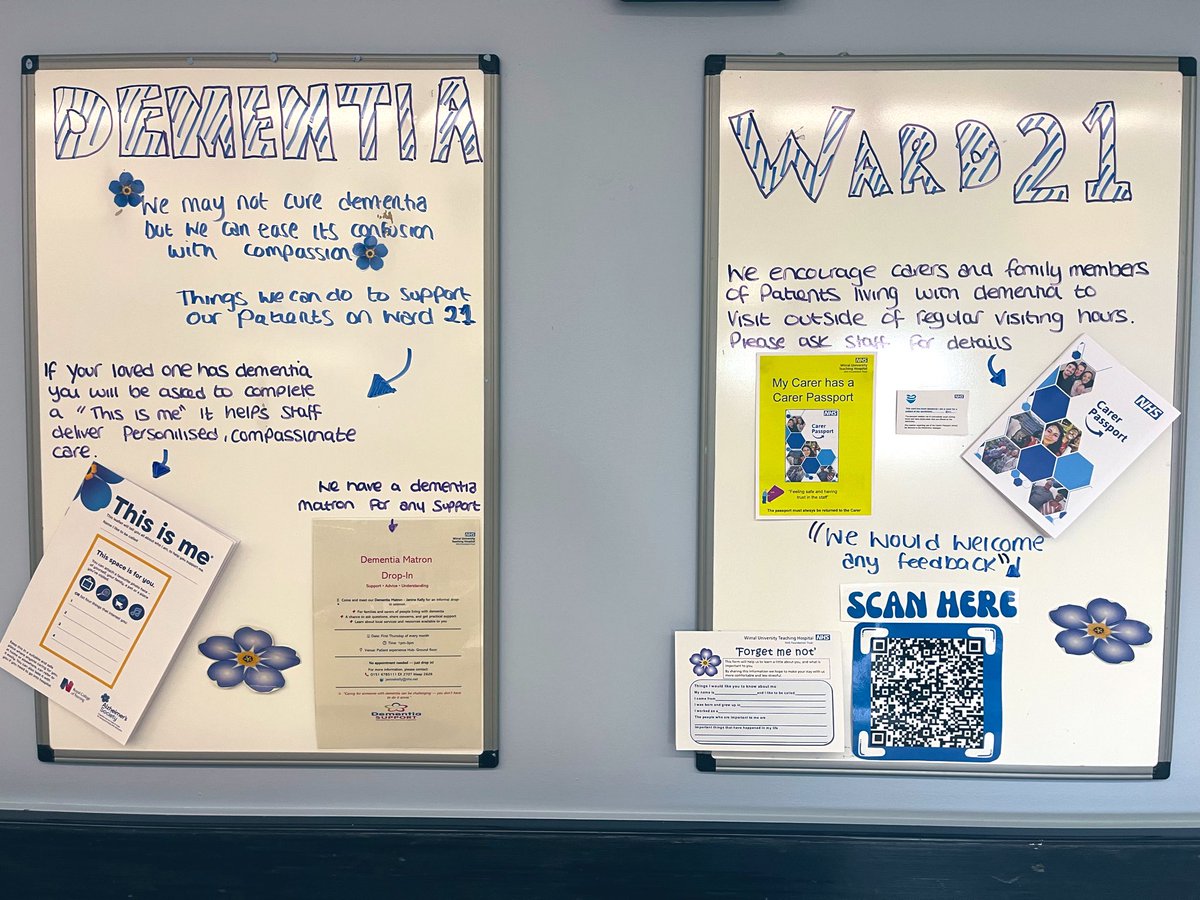 DEMENTIA
We may not cure dementia
but we can ease its confusion
with compassion
Things we can do to support
our Patients on Ward 21
If your loved one has dementia
you will be asked to complete
a "This is me" it helps staff
deliver Personilised, compassionate
care.
This is me
This space is for you.
Alzheimer's
Society
We have a dementia
matron for any support
NHS
Wirral University
Teaching Hospital
Dementia Matron
Drop-In
Support • Advice • Understanding
Come and meet our Dementia Matron - Janine Kelly for an informal drop-
in session.
For families and carers of people living with dementia
A chance to ask questions, share concerns, and get practical support
Learn about local services and resources available to you
Date: First Thursday of every month
Time: 1pm-3pm
Venue: Patient experience Hub- Ground floor
No appointment needed — just drop in!
For more information, please contact:
"Caring for someone with dementia can be challenging — you don't have
to do it alone."
Dementia
SUPPORT
WARD 21
We encourage carers and family members
of Patients living with dementia to
visit outside of regular visiting hours.
Please ask staff for details
NHS
Wirral University
Teaching Hospital
My Carer has a
Carer Passport
Carer
Passport
"Feeling safe and having
trust in the staff"
The passport must always be returned to the Carer
NHS
NHS
Carer
Passport
"We would welcome
any feedback"
SCAN HERE
Wirral University Teaching Hospital NHS
NHS Foundation Trust
'Forget me not'
This form will help us to learn a little about you, and what is
important to you.
By sharing this information we hope to make your stay with us
more comfortable and less stressful
Things I would like you to know about me
My name is and I like to be called
I come from
I was born and grew up in
I worked as a
The people who are important to me are
Important things that have happened in my life